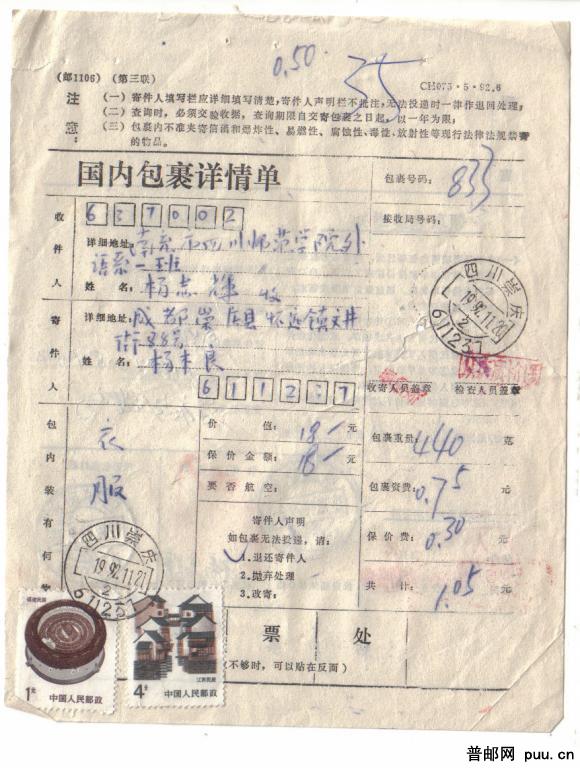 0.50
35
(邮1106) (第三联)
CH073·5·92.6
注意:
(一) 寄件人填写栏应详细填写清楚,寄件人声明栏不批注,无法投递时一律作退回处理;
(二) 查询时,必须交验收据,查询期限自交寄包裹之日起,以一年为限;
(三) 包裹内不准夹寄信函和爆炸性、易燃性、腐蚀性、毒性、放射性等现行法律法规禁寄的物品。
国内包裹详情单
包裹号码: 833
接收局号码:
收件人
637002
详细地址: 南充市四川师范学院外
语系一班
姓名: 杨志 收
寄件人
详细地址: 成都崇庆县怀远镇文井
街88号
姓名: 杨 良
611237
收寄人员盖章
检查人员盖章
四川崇庆
1992.11.20
2
611237
包内装有何
衣服
价值: 18 元
保价金额: 18 元
要否航空:
寄件人声明
如包裹无法投递,请:
✓1.退还寄件人
2.抛弃处理
3.改寄:
包裹重量: 440 克
包裹资费: 0.75 元
保价费: 0.30 元
共计: 1.05 元
四川崇庆
1992.11.20
2
611237
票处
(不够时,可以贴在反面)
福建民居
1元
中国人民邮政
江西民居
4分
中国人民邮政
普邮网 puu.cn